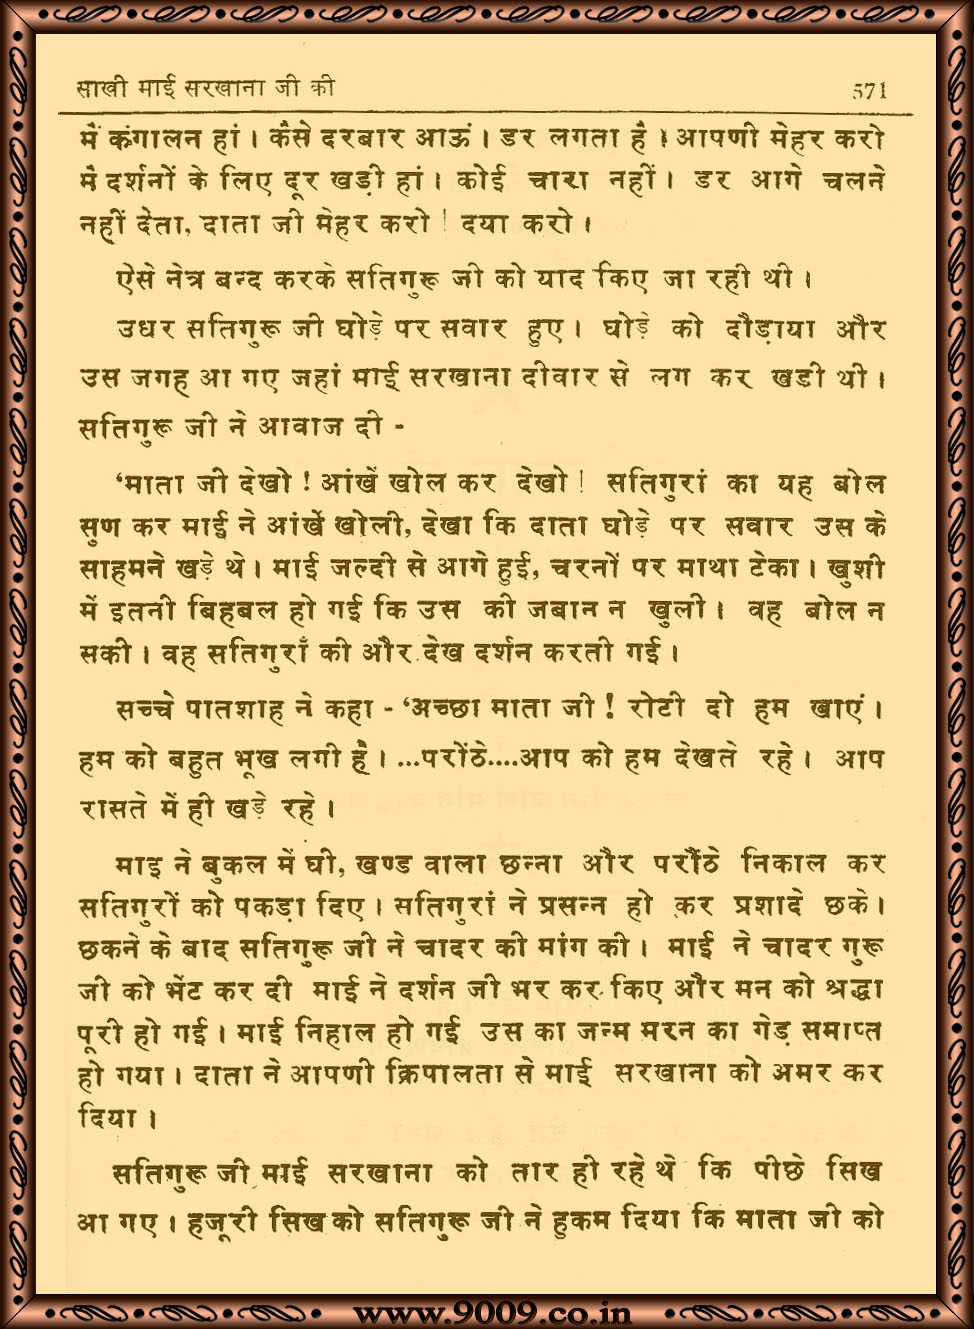 साखी माई सरखाना जी की 571
मैं कंगालन हां । कैसे दरबार आऊं । डर लगता है । आपणी मेहर करो
मै दर्शनों के लिए दूर खड़ी हां । कोई चारा नहीं । डर आगे चलने
नहीं देता, दाता जी मेहर करो ! दया करो ।
ऐसे नेत्र बन्द करके सतिगुरू जी को याद किए जा रही थी ।
उधर सतिगुरू जी घोड़े पर सवार हुए । घोड़े को दौड़ाया और
उस जगह आ गए जहां माई सरखाना दीवार से लग कर खडी थी ।
सतिगुरू जी ने आवाज दी -
‘माता जी देखो ! आंखें खोल कर देखो ! सतिगुरां का यह बोल
सुण कर माई ने आंखें खोली, देखा कि दाता घोड़े पर सवार उस के
साहमने खड़े थे । माई जल्दी से आगे हुई, चरनों पर माथा टेका । खुशी
में इतनी बिहबल हो गई कि उस की जबान न खुली । वह बोल न
सकी । वह सतिगुराँ की और देख दर्शन करती गई ।
सच्चे पातशाह ने कहा - ‘अच्छा माता जी ! रोटी दो हम खाएं ।
हम को बहुत भूख लगी है । ...परोंठे....आप को हम देखते रहे । आप
रासते में ही खड़े रहे ।
माइ ने बुकल में घी, खण्ड वाला छन्ना और परौंठे निकाल कर
सतिगुरों को पकड़ा दिए । सतिगुरां ने प्रसन्न हो कर प्रशादे छके ।
छकने के बाद सतिगुरू जी ने चादर की मांग की । माई ने चादर गुरू
जी को भेंट कर दी माई ने दर्शन जी भर कर किए और मन को श्रद्धा
पूरी हो गई । माई निहाल हो गई उस का जन्म मरन का गेड़ समाप्त
हो गया । दाता ने आपणी क्रिपालता से माई सरखाना को अमर कर
दिया ।
सतिगुरू जी माई सरखाना को तार ही रहे थे कि पीछे सिख
आ गए । हजूरी सिख को सतिगुरू जी ने हुकम दिया कि माता जी को
www.9009.co.in